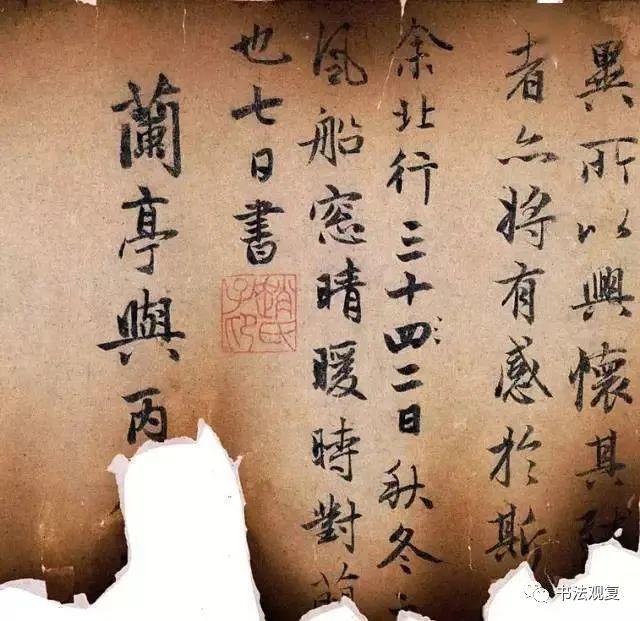 異所以興懷其致
者亦將有感於斯
余北行三十四二日秋冬之
風船窓晴暖時對蘭
也七日書
趙氏子昂
蘭亭與丙
书法观复